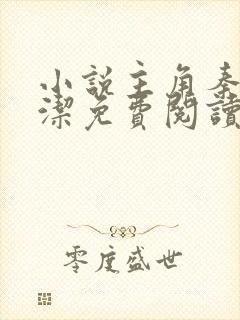 小說主角秦
潔免費閱讀
零度盛世